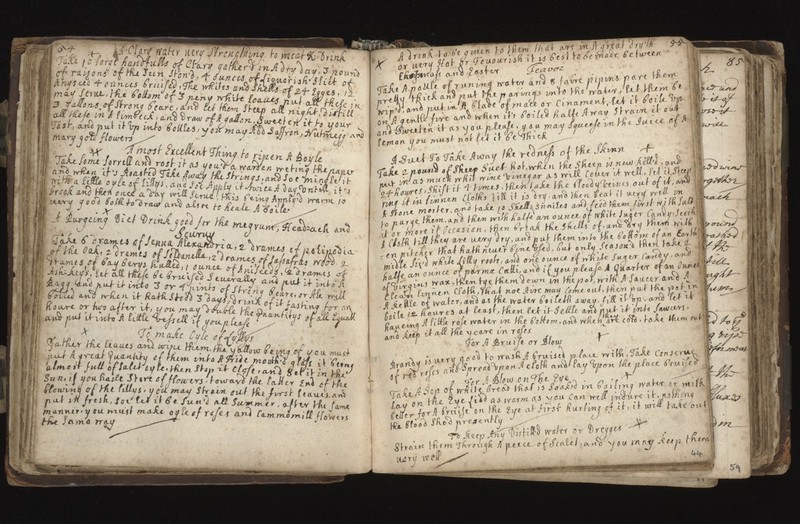 54
A Clary water very Strengthing to meat & Drink
Take 10 large handfulls of Clary gather'd in A dry day, 3 pound
of raisons of the Sun Ston'd, 4 ounces of Liquorish Slict, of
Anyseed 4 ounces bruised, The whites and Shells of 24 Egges, 12
may Scruse, the bottom of 3 peny white loaves, put all these in
3 Gallons of Strong beare, and let them Steep all night, distill
all these in A limbeck, and draw of A gallon, Sweeten it to your
Tast, and put it up into bottles, you may Add Saffron, Nutmegs and
mary gold flowers
A most Excellent Thing to ripen A Boyle
Take Some Sorrell and rost it as you do A warden wreting the paper
and when it's Roasted Take Away the Strines, and soe mingle it
with a little oyle of lillys, and Soe Apply it twice A day, untill it's
break and then once a day will serve, this being Apply'd warm is
very good both to draw and alsoe to heale A Boile
A Purgeing Diet Drink good for the megrum, Headeach and
Scurvy
Take 6 drames of Senna Alexandria, 2 drames of polipodia
of the Oak, 2 dremes of Soldanella, 2 drames of Sasafras wood, 2
drames of bay berys hulled, 1 ounce of Aniseeds, 2 drames of
Ash-keys, let all these be bruised Severally and put it into A
Bagg, and put it into 3 or 4 pints of Strong Beare, or Ale well
boiled and when it hath Stood 3 days, drink of it fasting for an
houre or two after it, you may double the Quantitys of all Equall
and put into A little Vessell if you please
To make Oyle of Lyllys
Gather the leaves and wipe them, the yellow being of you must
put A great Quantity of them into A wide mouth'd glass it being
almost full of Salet oyle, then Stop it Close, and Set it in the
Sun, if you have Store of flowers, toward the latter End of the
blowing of the lillys, you may Strain out the first leaves, and
put in fresh, Soe let it be Sun'd all Summer, after the Same
manner you must make oyle of roses and Cammomill flowers
the Same way
55
A drink to be given to them that are in A great dryth
or very Hot or Feavourish it is best to be made between
Christmass and Easter
Feavor
Take A pottle of runing water and 8 faire pipins pare them
pretty thick and put the parings into the water, let them be
wip'd, and put in A blade of mace or Cinament, let it boile up
on A gentle fire and when it's boiled halfe Away Strain it out
and Sweeten it as you please, you may Squeese in the Juice of A
lemon you must not let it be thick
A Suet To Take Away the redness of the Skinn
Take 2 pound of Sheep Suet hot, when the Sheep is new killed, and
put in as much whit wine vinegor as will Cover it well, let it Steep
24 houres, Shift it 4 times, then take the bloody veines out of it, and
ring it in linnen Cloths till it is dry, and then beat it very well in
A Stone morter, and take 10 Shell Snailes and feed them first with Salt
to purge them, and then with halfe an ounce of white Suger Candy, Seeth
it or more if Occasion, then brak the Shells of, and dry them with
A Cloth till they are very dry, and put them into the bottom of an Earth
-en pitcher that hath never bine used, but only be Seasond then take 2
midle Sized white lilly roots, and one ounce of white Suger Candy, and
halfe an ounce of parma Ceti, and if you please A Quarter of an ounce
of Virgins wax, then tye them down in the pot, with A Saucer and A
Clean linnen Cloth, that not Aire may Come out, then put the pot in
A kettle of water, and as the water boileth away, fill it up, and let it
boile 12 houres at least, then let it Settle and put it into Sawcers
haveing A litle rose water in the bottom, and when they are cold, take them out
and keep it all the yeare in rose
For A Bruise or Blow
Brandy is very good to wash A bruised place with, Take Conserve
of red roses and Spread upon A Cloth and lay upon the place bruised
For A Blow on The Eye
Take A Sop of white bread that is Soaked in boiling water or milk
lay on the Eye Sid as warm as you can well indure it, nothing
better for A bruise on the Eye at first hurting of it, it will take out
the blood Shed presently
To keep Any Distill'd water or Dregges
Strain them Through A peece of Scarlet, and you may keep them
very well
44
85
59